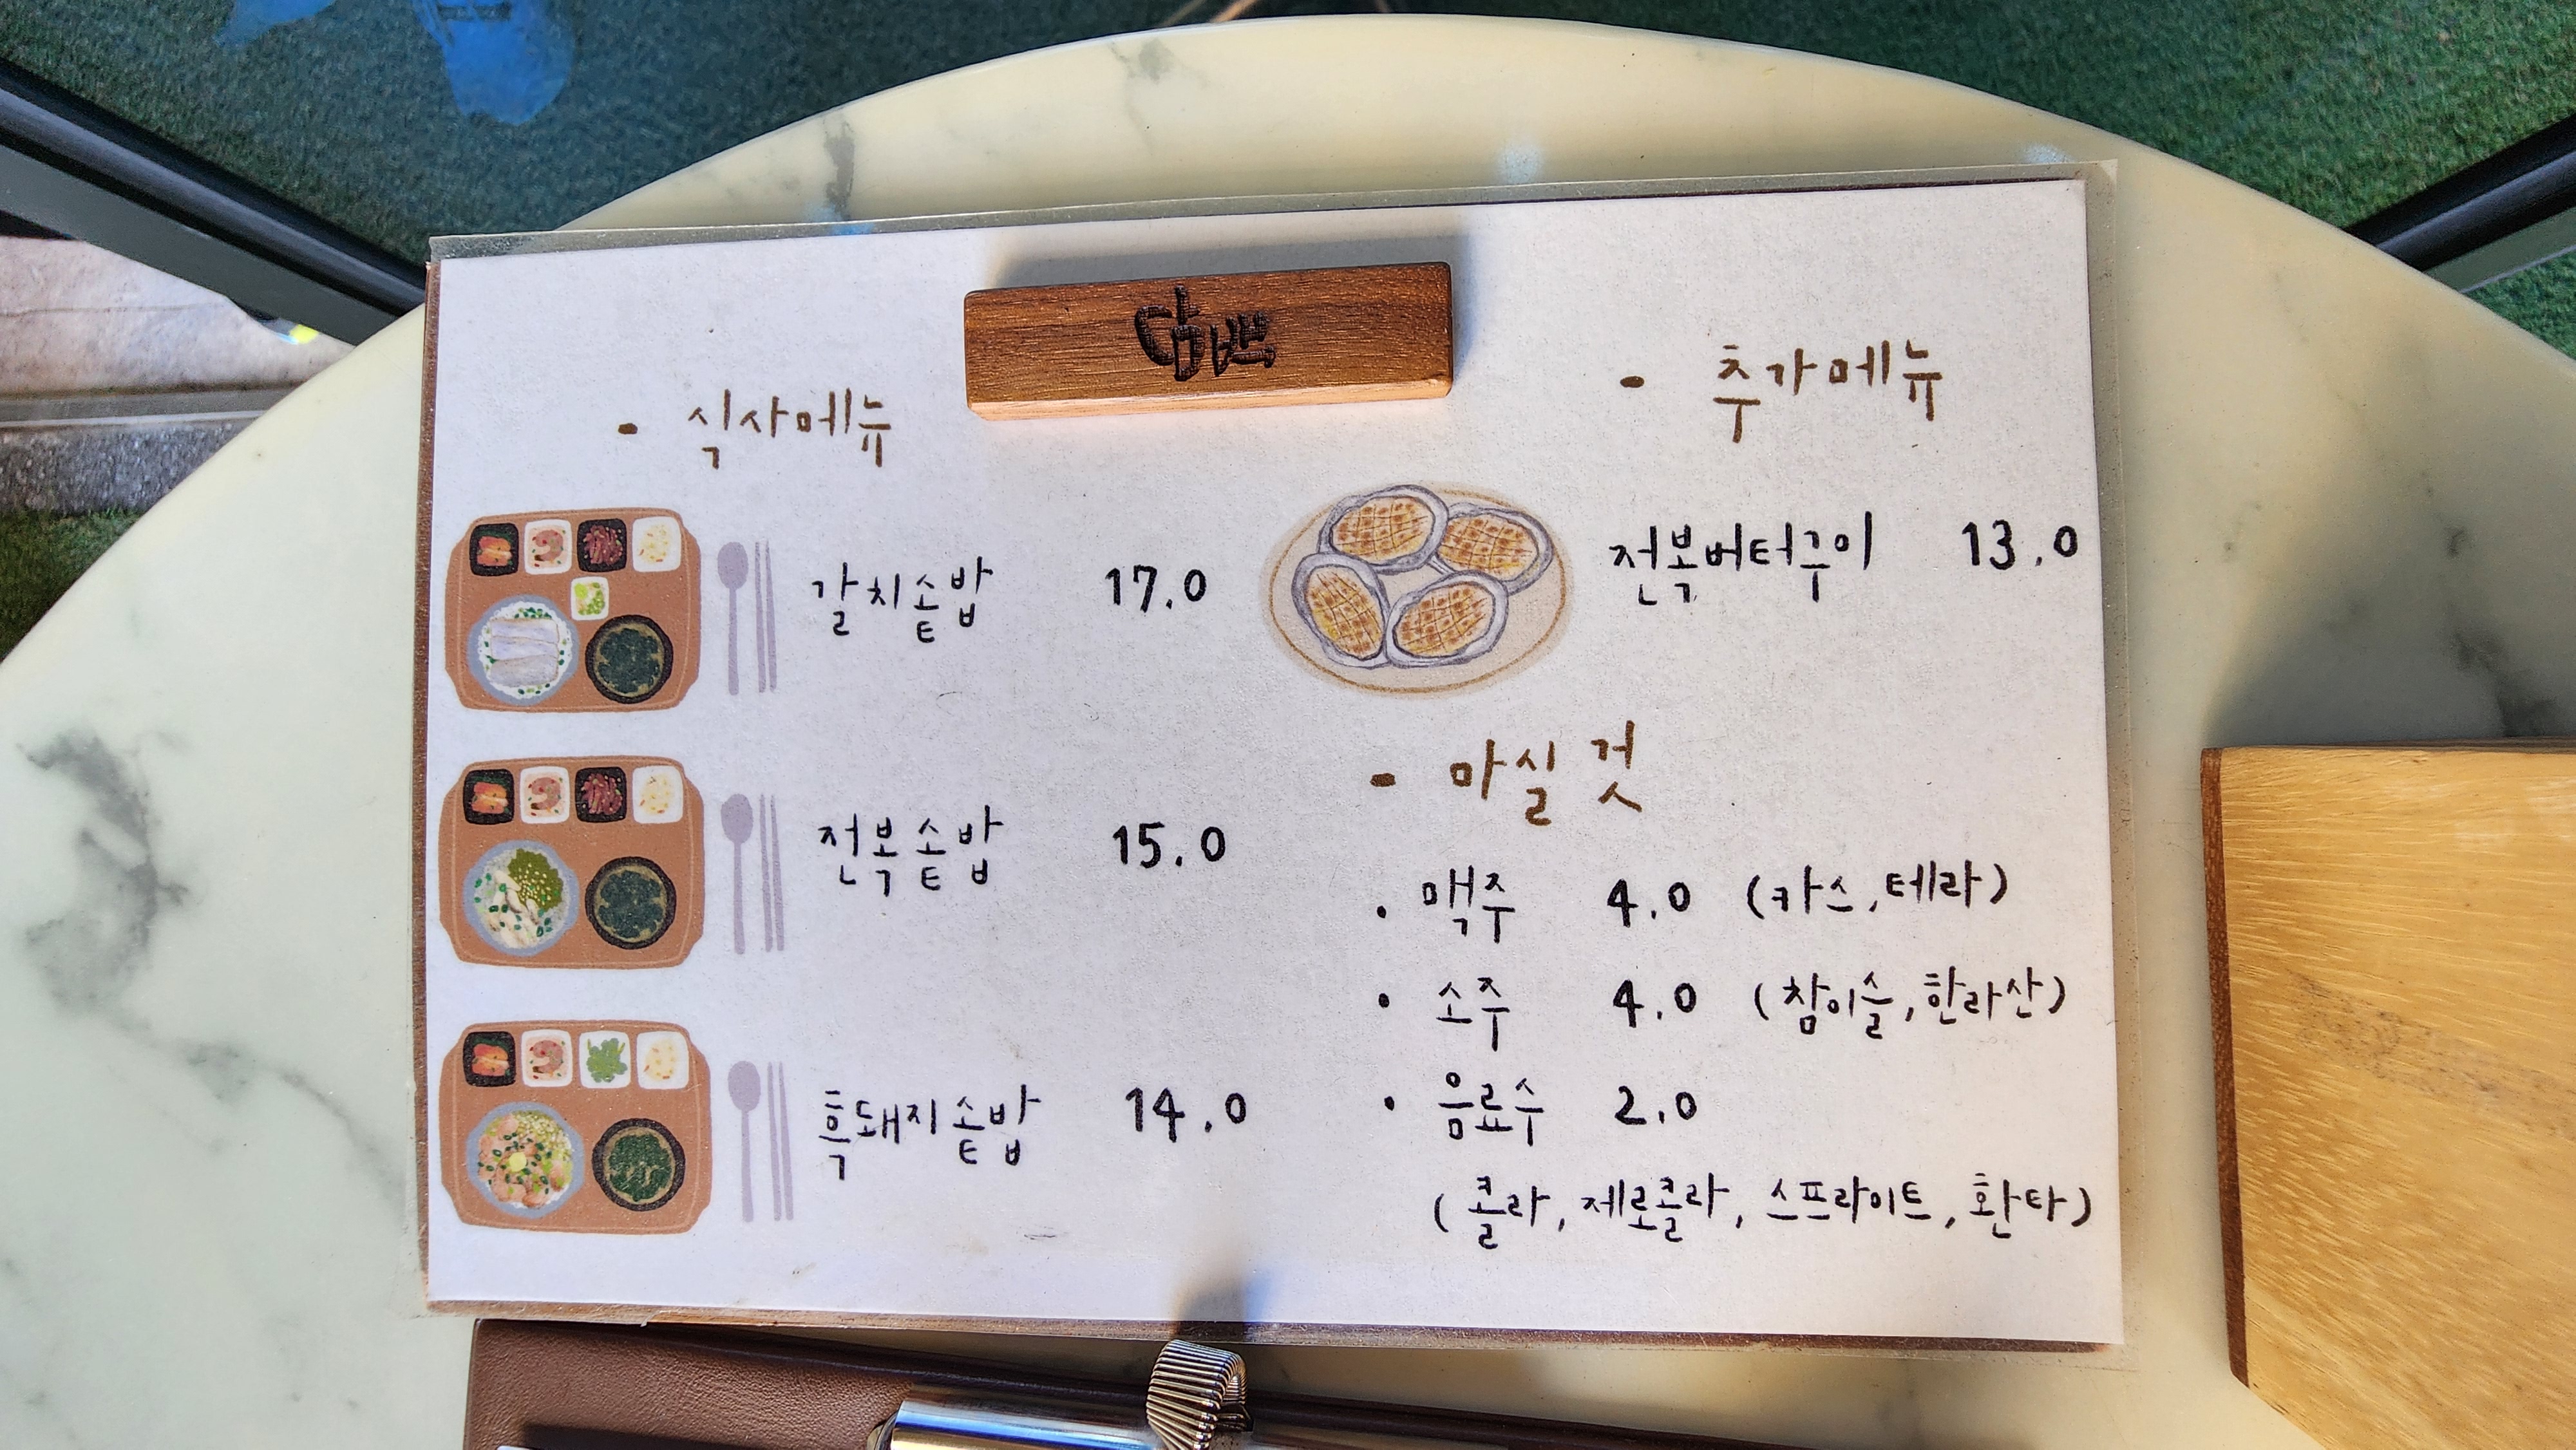 담쁘
- 식사메뉴
갈치솥밥 17.0
전복솥밥 15.0
흑돼지솥밥 14.0
- 추가메뉴
전복버터구이 13.0
- 마실 것
• 맥주 4.0 (카스, 테라)
• 소주 4.0 (참이슬, 한라산)
• 음료수 2.0
(콜라, 제로콜라, 스프라이트, 환타)